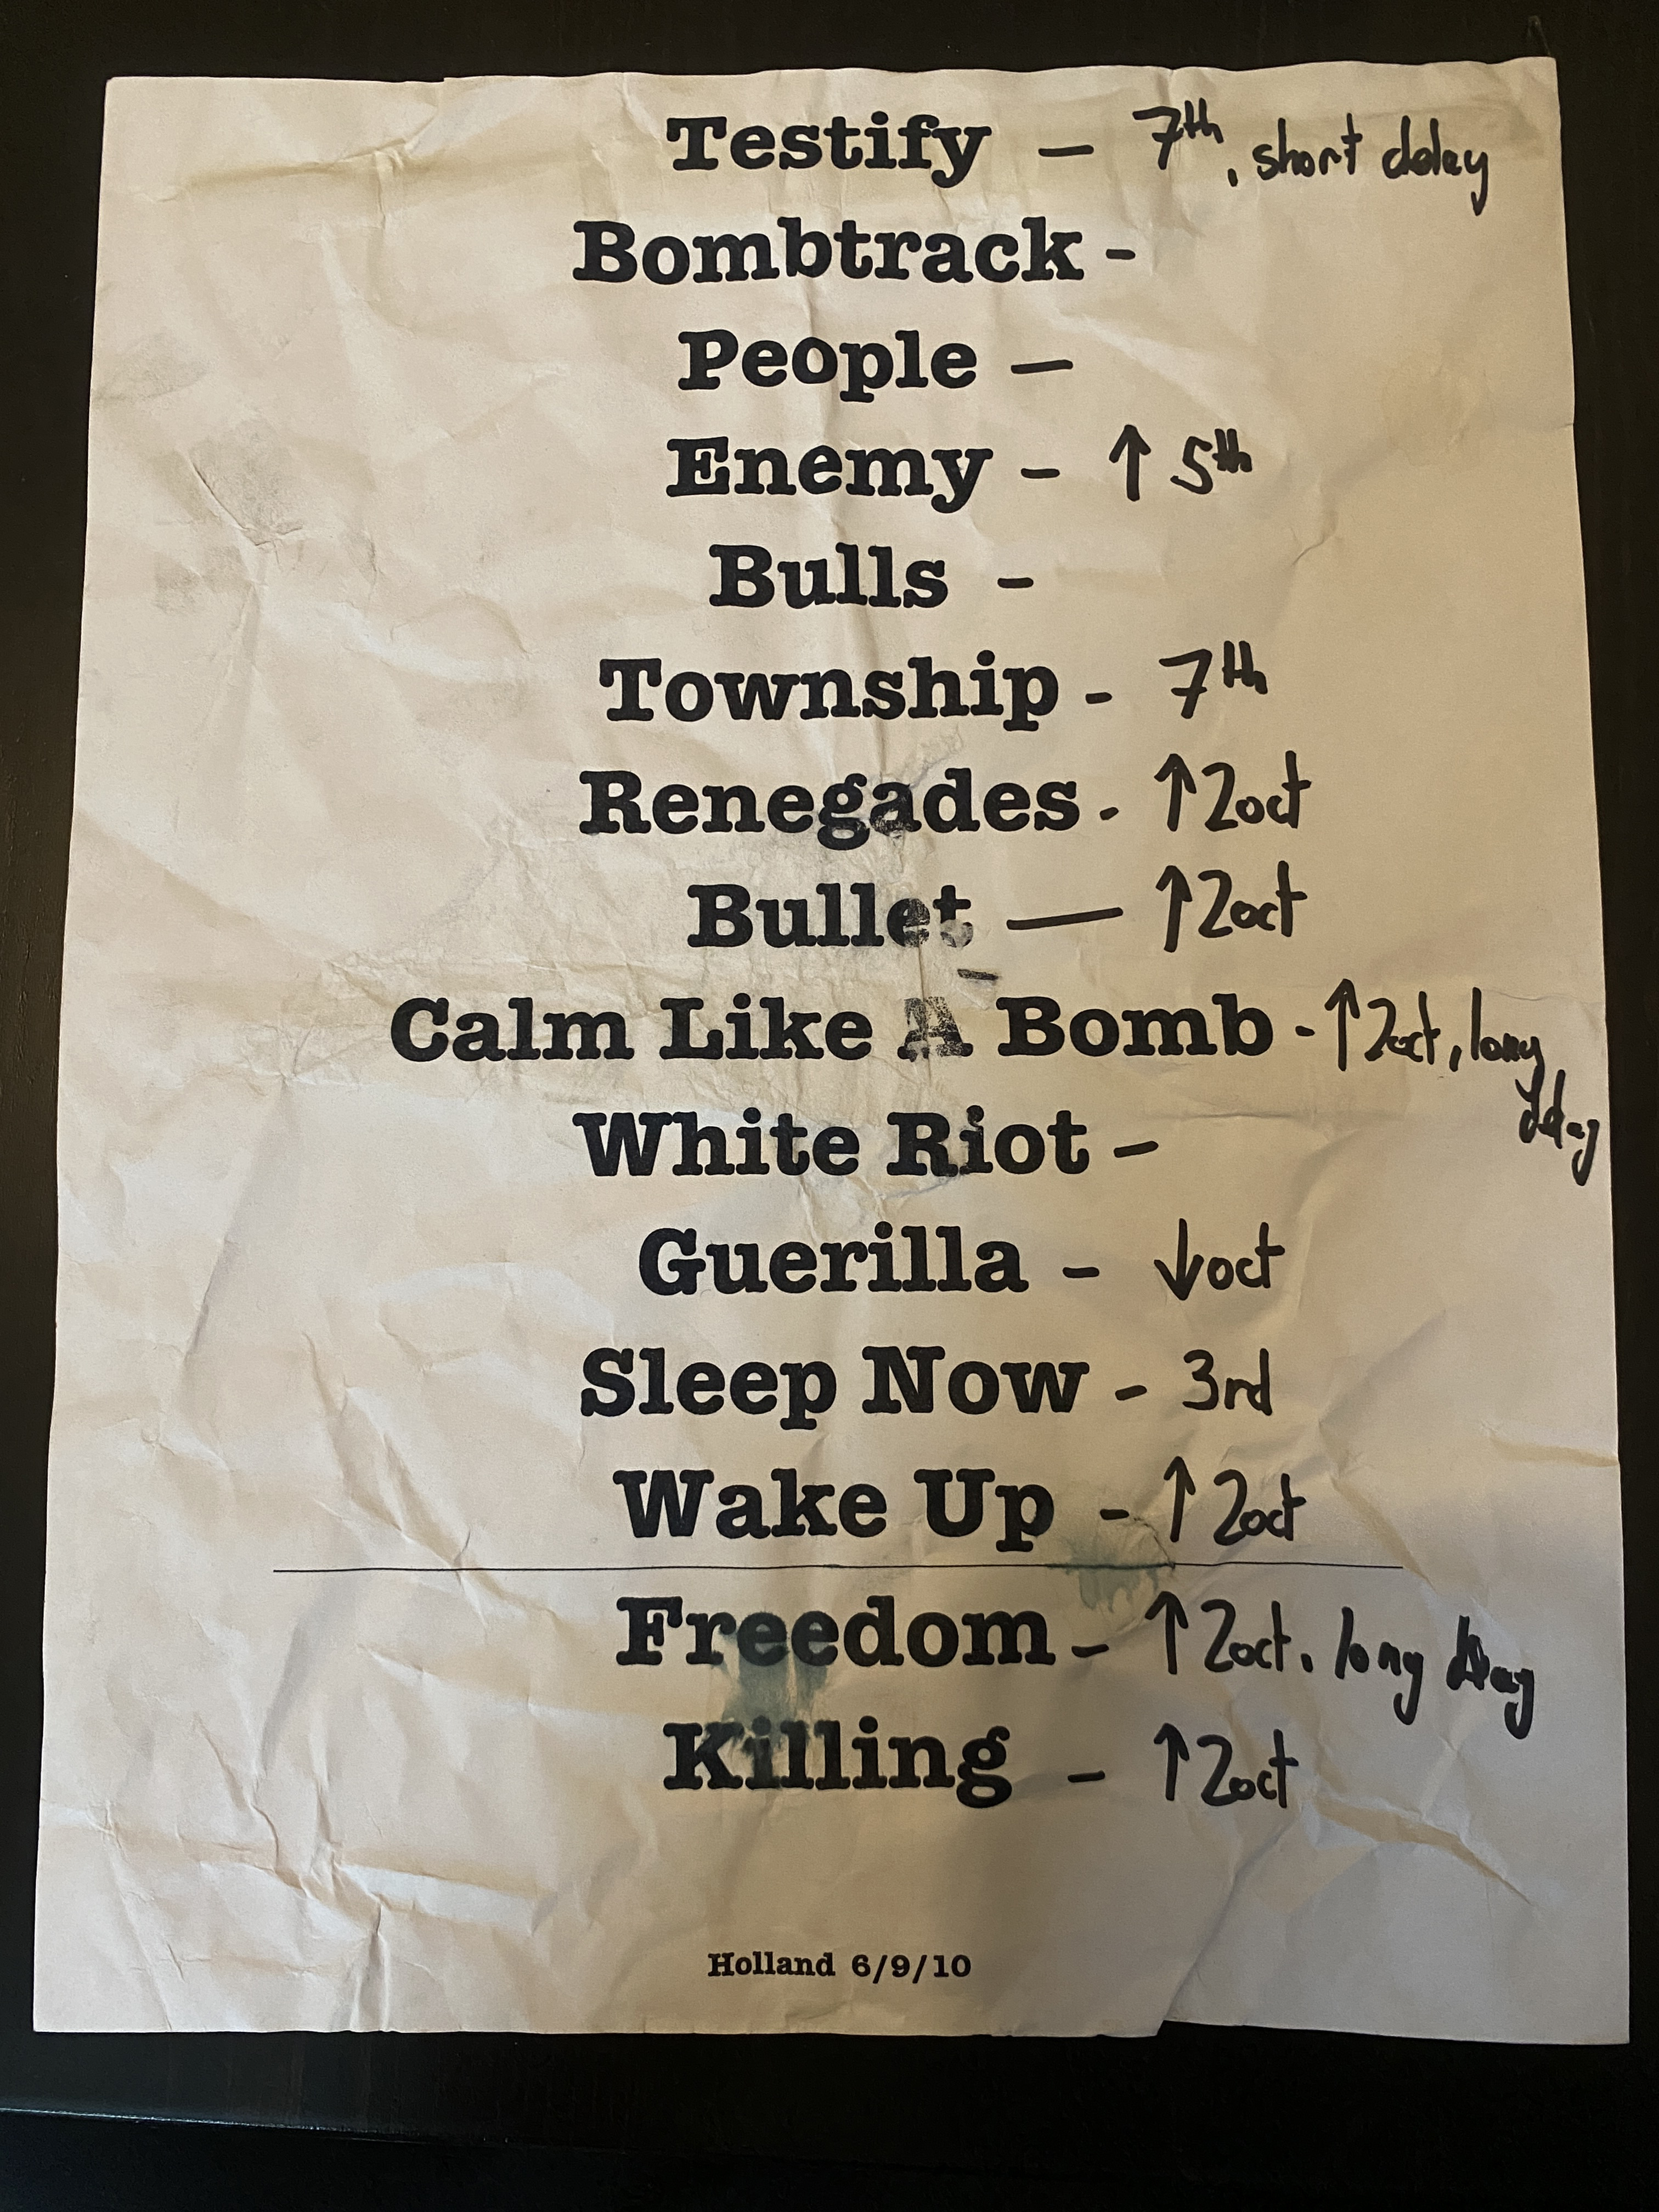 Testify — 7th, short delay
Bombtrack -
People —
Enemy - ↑ 5th
Bulls -
Township - 7th
Renegades - ↑2oct
Bullet — ↑2oct
Calm Like A Bomb - ↑2oct, long
delay
White Riot -
Guerilla - ↓oct
Sleep Now - 3rd
Wake Up - ↑2oct
Freedom - ↑2oct, long delay
Killing - ↑2oct
Holland 6/9/10